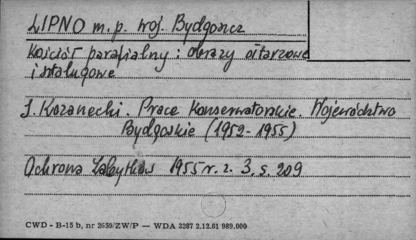 LIPNO m. p. woj. Bydgoszcz
Kościół parafialny: obrazy ołtarzowe
i stalugowe
J. Kozanecki. Prace Konserwatorskie. Województwo
Bydgoskie (1952-1955)
Ochrona Zabytków 1955 r. z. 3, s. 209
CWD - B-15 b, nr 2659/ZW/P — WDA 3287 2.12.61 989.000